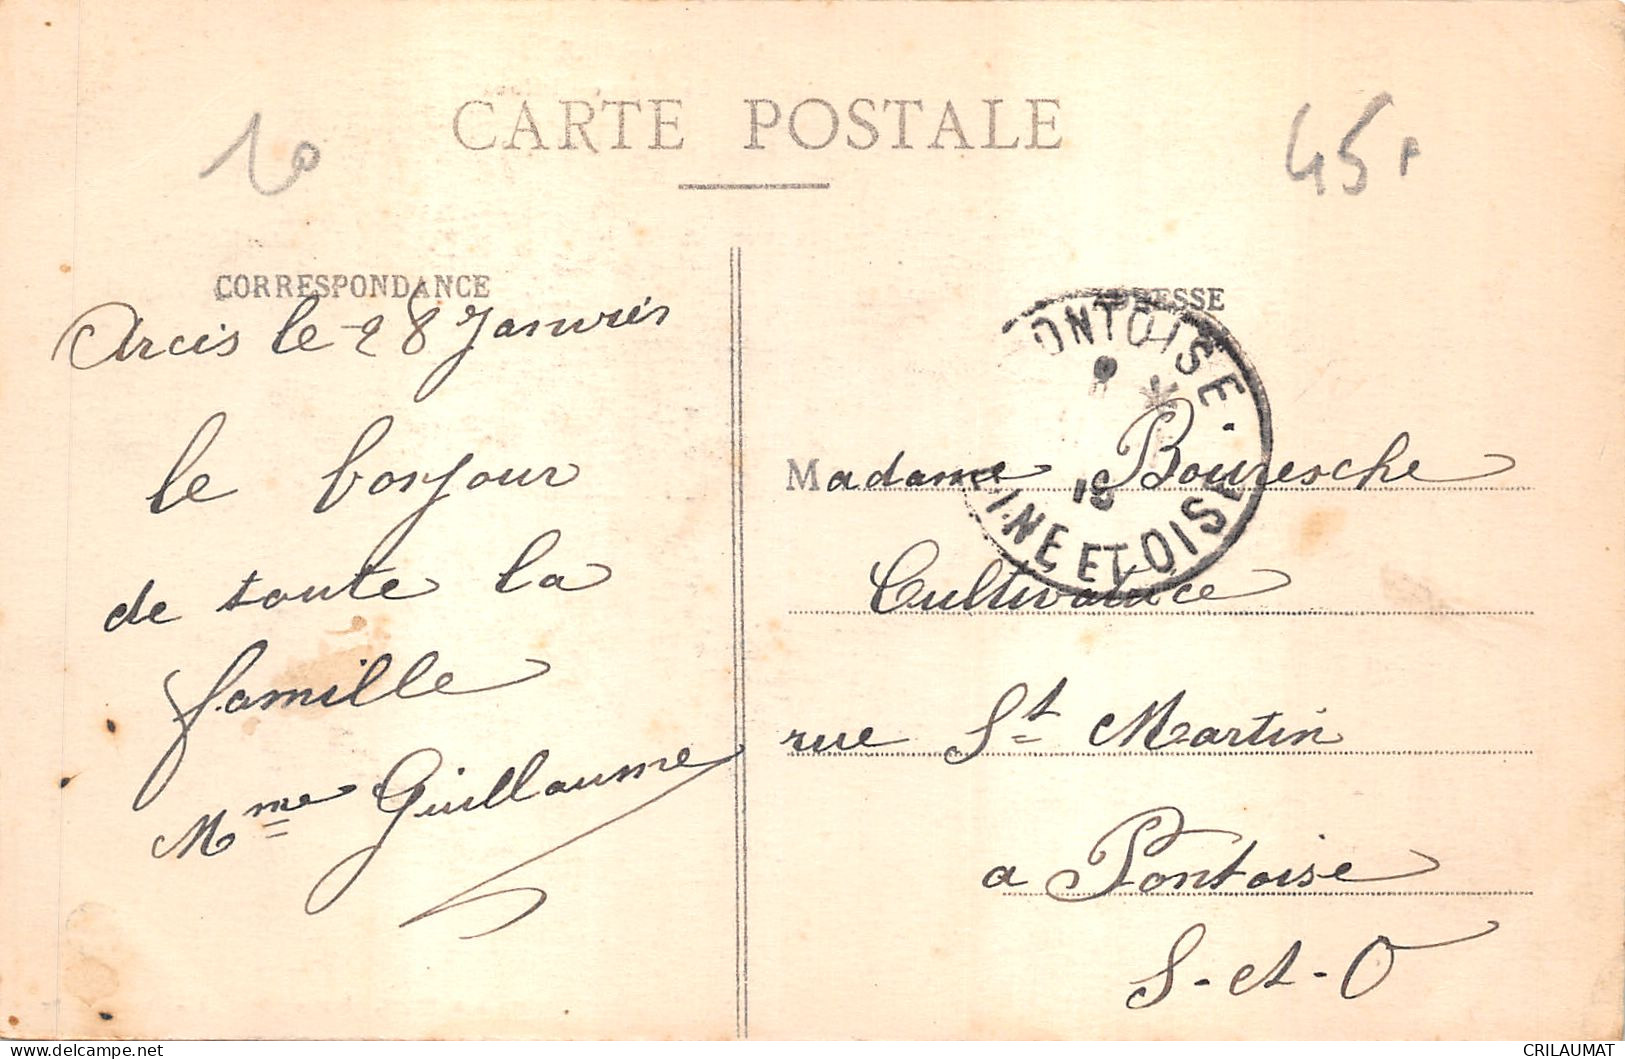 10
CARTE POSTALE
45F
CORRESPONDANCE
Arcis le 28 Janvier
le bonjour
de toute la
famille
Mme Guillaume
ADRESSE
ONTOISE
18
INE ET OISE
Madame Bouresche
Cultivatrice
rue St Martin
a Pontoise
S-et-O
CRILAUMAT